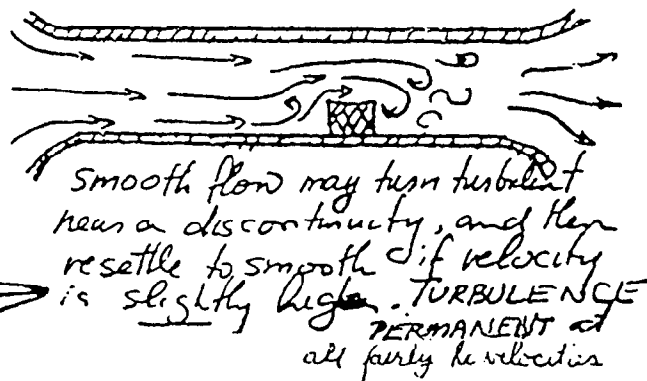 smooth flow may turn turbulent
near a discontinuity, and then
resettle to smooth if velocity
is slightly high. TURBULENCE
PERMANENT at
all fairly hi velocities